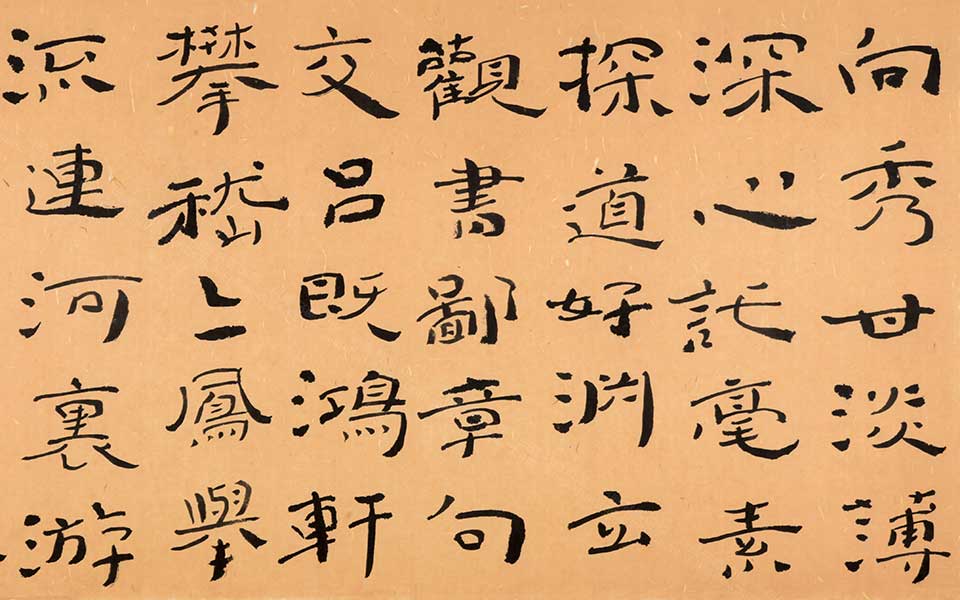 向秀甘淡薄
深心託毫素
探道好淵玄
觀書鄙章句
交呂既鴻軒
攀嵇亦鳳舉
流連河裏游